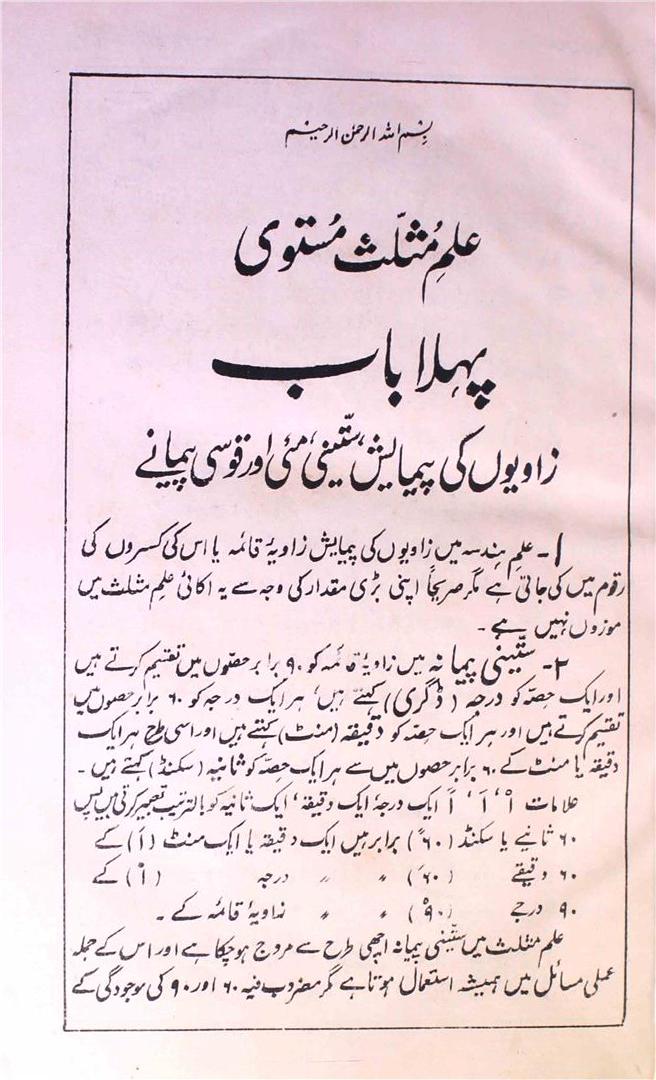 بسم اللہ الرحمن الرحیم
علمِ مُثلّث مُستوی
پہلا باب
زاویوں کی پیمایش، ستّینی، مئی اور قوسی پیمانے
۱- علمِ ہندسہ میں زاویوں کی پیمایش زاویۂ قائمہ یا اس کی کسروں کی
رقوم میں کی جاتی ہے مگر صریحاً اپنی بڑی مقدار کی وجہ سے یہ اکائی علمِ مثلث میں
موزوں نہیں ہے۔
۲- ستّینی پیمانہ میں زاویۂ قائمہ کو ۹۰ برابر حصّوں میں تقسیم کرتے ہیں
اور ایک حصّہ کو درجہ (ڈگری) کہتے ہیں، ہر ایک درجہ کو ۶۰ برابر حصوں میں
تقسیم کرتے ہیں اور ہر ایک حصّہ کو دقیقہ (منٹ) کہتے ہیں اور اسی طرح ہر ایک
دقیقہ یا منٹ کے ۶۰ برابر حصوں میں سے ہر ایک حصّہ کو ثانیہ (سکنڈ) کہتے ہیں۔
علامات ۱°، ۱′، ۱″ ایک درجہ، ایک دقیقہ، ایک ثانیہ کو بالترتیب تعبیر کرتی ہیں پس
۶۰ ثانیے یا سکنڈ (۶۰″) برابر ہیں ایک دقیقہ یا ایک منٹ (۱′) کے
۶۰ دقیقے (۶۰′) ״ ״ درجہ (۱°) کے
۹۰ درجے (۹۰°) ״ ״ زاویۂ قائمہ کے۔
علم مثلث میں ستّینی پیمانہ اچھی طرح سے مروج ہوچکا ہے اور اس کے جملہ
عملی مسائل میں ہمیشہ استعمال ہوتا ہے مگر مضروب فیہ ۶۰ اور ۹۰ کی موجودگی کے